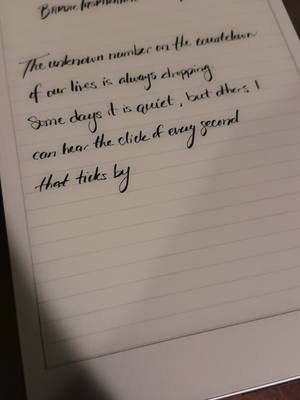 The unknown number on the countdown
of our lives is always dropping.
Some days it is quiet, but others I
can hear the click of every second
that ticks by